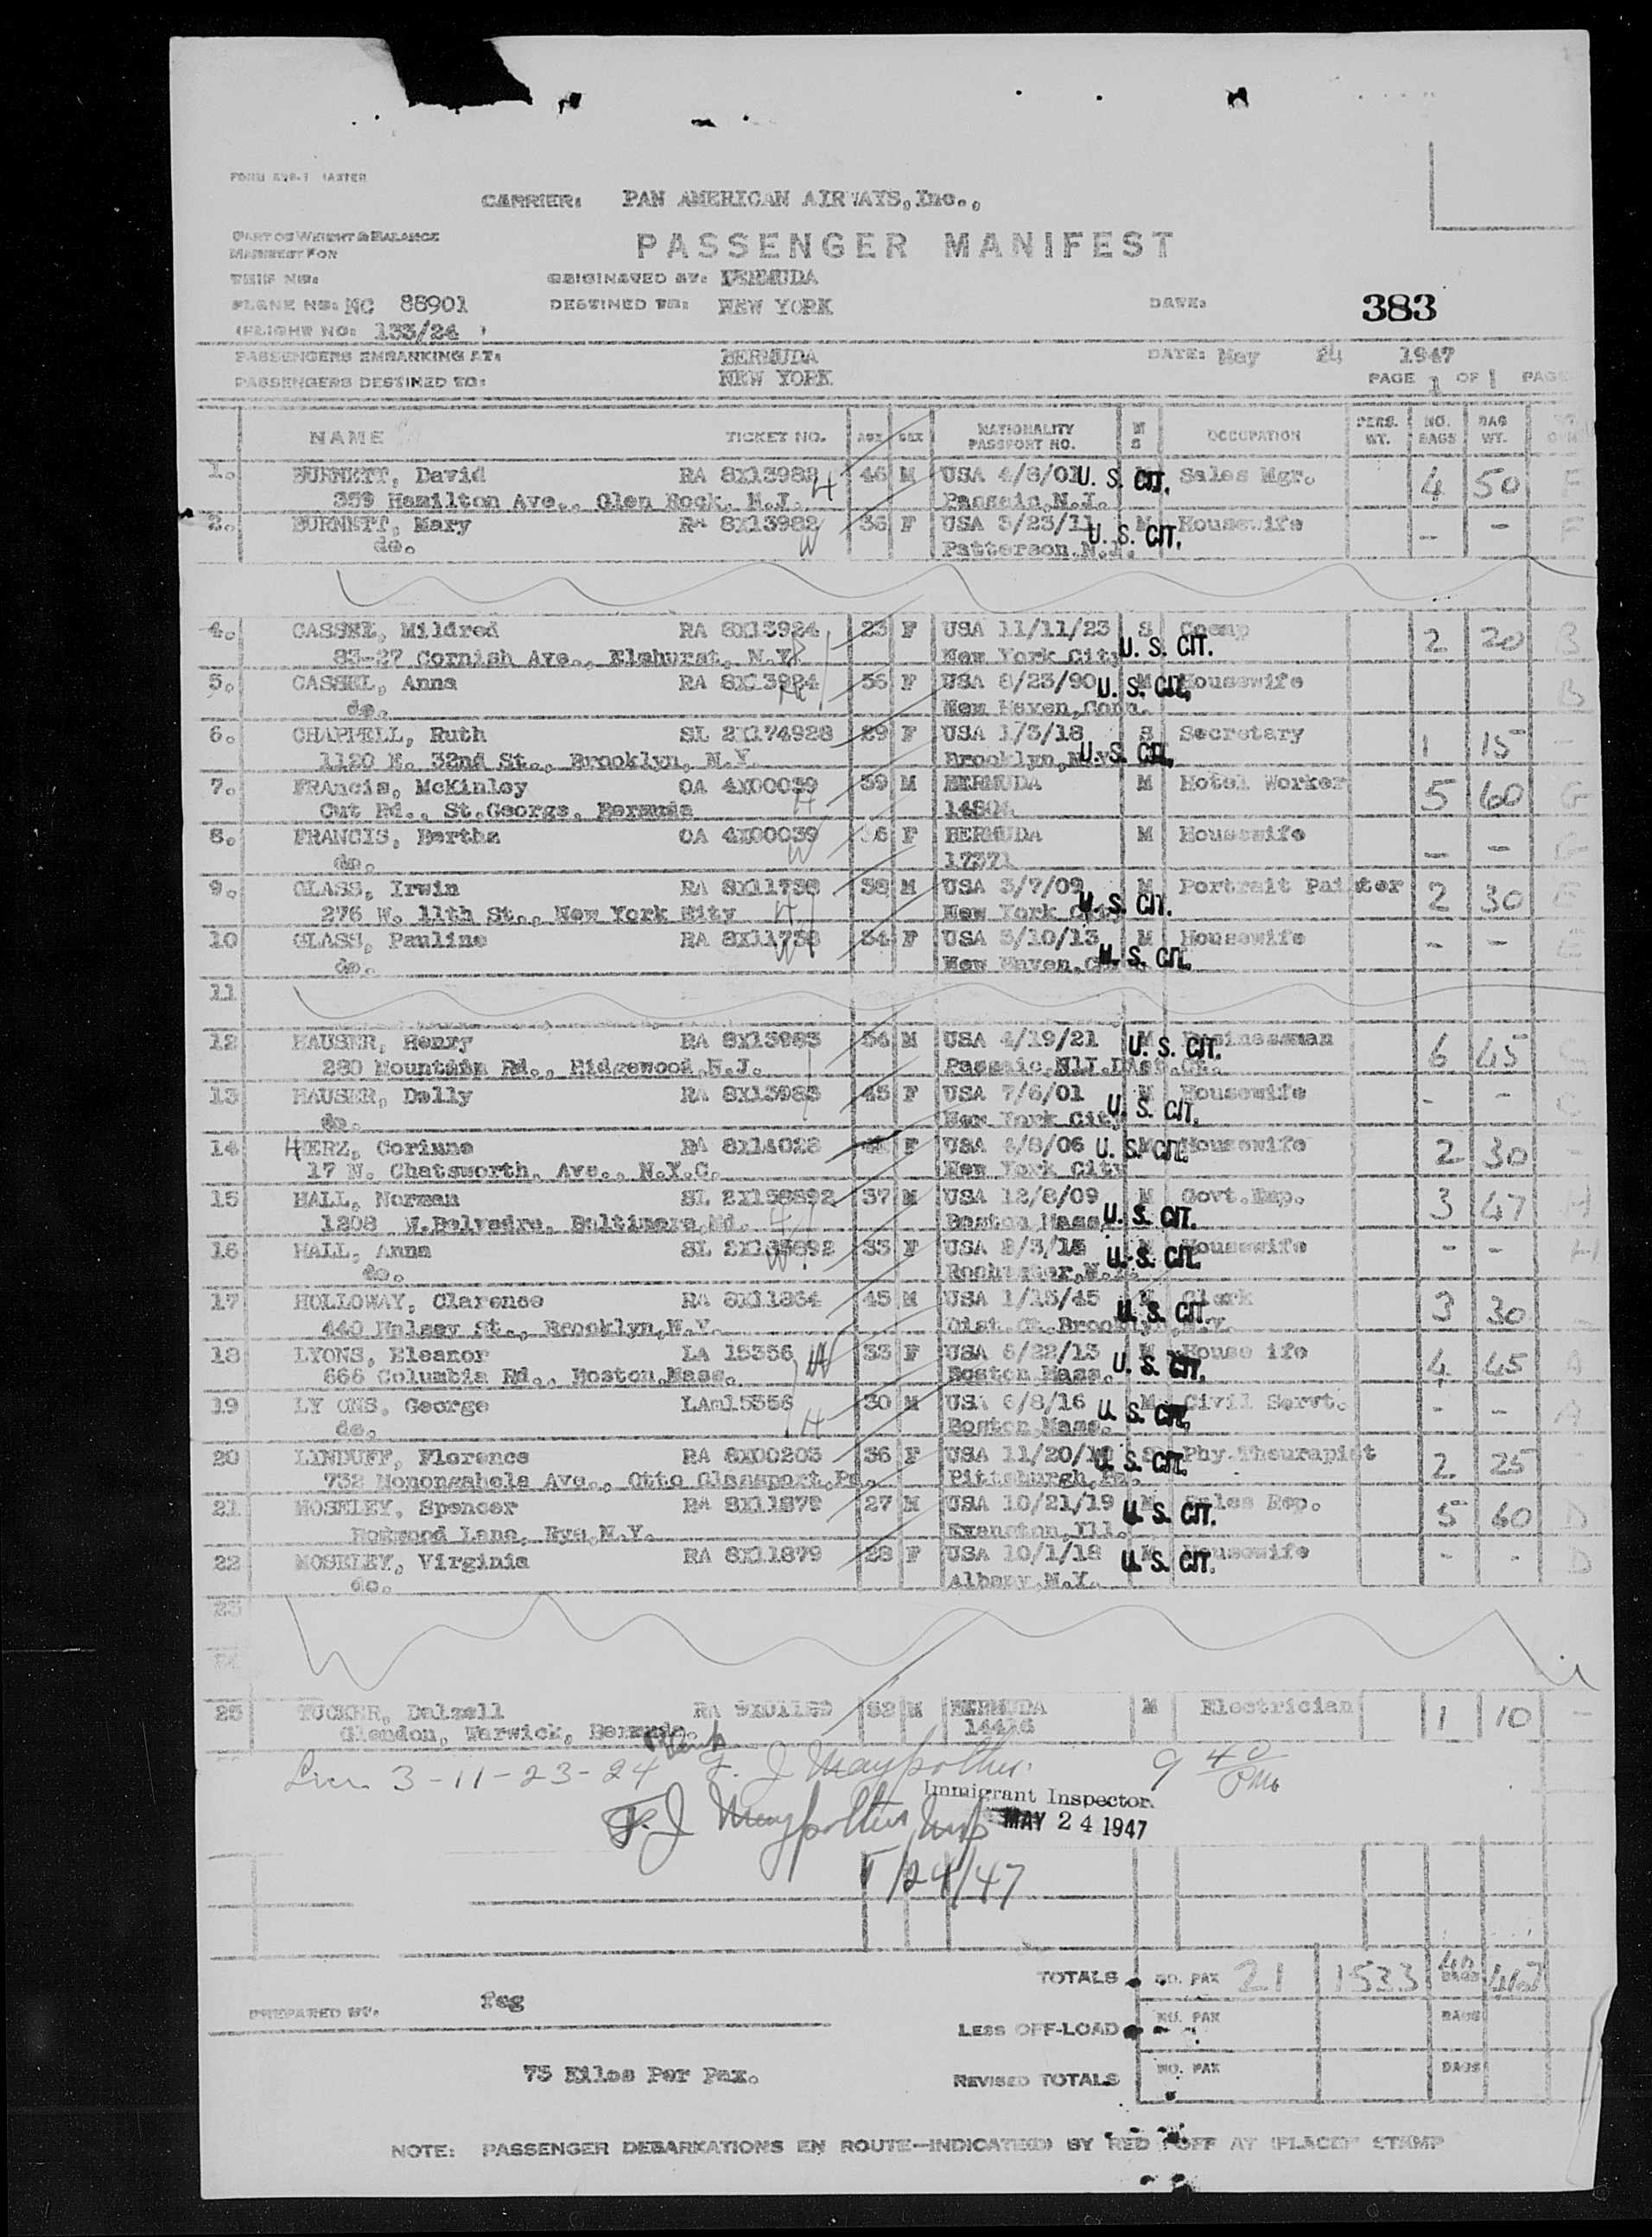 CARRIER: PAN AMERICAN AIRWAYS, Inc.,
PART OF WEIGHT & BALANCE
MANIFEST FOR
PASSENGER MANIFEST
TRIP NO:
ORIGINATED AT: BERMUDA
PLANE NO: NC 88901
DESTINED TO: NEW YORK
DATE:
383
(FLIGHT NO: 133/24 )
PASSENGERS EMBARKING AT: BERMUDA DATE: May 24 1947
PASSENGERS DESTINED TO: NEW YORK
PAGE 1 OF 1 PAGE
NAME TICKET NO. AGE SEX NATIONALITY PASSPORT NO. M S OCCUPATION PERS. WT. NO. BAGS BAG WT.
1. BURNETT, David RA 8X13982 H 46 M USA 4/8/01 U. S. CIT. Sales Mgr. 4 50 E
359 Hamilton Ave., Glen Rock, N.J. Passaic, N.J.
2. BURNETT, Mary RA 8X13982 W 36 F USA 5/23/11 U. S. CIT. M Housewife - - F
do. Patterson, N.J.
4. CASSEL, Mildred RA 8X13924 23 F USA 11/11/23 S U. S. CIT. 2 20 B
83-27 Cornish Ave., Elmhurst, N.Y. New York City
5. CASSEL, Anna RA 8X13924 56 F USA 8/23/90 U. S. CIT. M Housewife B
do. New Haven, Conn.
6. CHAPPELL, Ruth SL 2X174928 29 F USA 1/3/18 S U. S. CIT. Secretary 1 15 -
1120 E. 32nd St., Brooklyn, N.Y. Brooklyn, N.Y.
7. FRAncis, McKinley OA 4X00039 H 39 M BERMUDA M Hotel Worker 5 60 G
Cut Rd., St.George, Bermuda
8. FRANCIS, Bertha OA 4X00039 W 36 F BERMUDA M Housewife - - G
do. 17371
9. GLASS, Irwin RA 8X11738 H 38 M USA 3/7/09 M U. S. CIT. Portrait Painter 2 30 E
276 W. 11th St., New York City New York City
10 GLASS, Pauline RA 8X11738 W 34 F USA 3/10/13 M U. S. CIT. Housewife - - E
do. New Haven, Conn.
11
12 HAUSER, Henry RA 8X13983 54 M USA 4/19/21 M U. S. CIT. Businessman 6 45 C
280 Mountain Rd., Ridgewood, N.J. Passaic, NlJ.Dist.Ct.
13 HAUSER, Dolly RA 8X13983 45 F USA 7/6/01 M U. S. CIT. Housewife - - C
do. New York City
14 HERZ, Corinne RA 8X14028 F USA 4/8/06 U. S. CIT. Housewife 2 30 -
17 N. Chatsworth, Ave., N.Y.C. New York City
15 HALL, Norman SL 2X138892 H 37 M USA 12/8/09 M U. S. CIT. Govt.Emp. 3 47 H
1208 W.Belvedre, Baltimore, Md. Boston Mass.
16 HALL, Anna SL 2X138892 W 33 F U. S. CIT. Housewife - - H
do. Rochester, N.Y.
17 HOLLOWAY, Clarence RA 8X11364 45 M USA 1/15/45 M U. S. CIT. Clerk 3 30 -
440 Halsey St., Brooklyn, N.Y. Dist. Ct. Brooklyn, N.Y.
18 LYONS, Eleanor LA 15356 W 33 F USA 8/22/13 M U. S. CIT. House ife 4 45 A
666 Columbia Rd., Boston, Mass. Boston Mass.
19 LY ONS, George LA 15356 H 30 M USA 6/8/16 M U. S. CIT. Civil Servt. - - A
do. Boston, Mass.
20 LINDUFF, Florence RA 8X00203 36 F USA 11/20/10 U. S. CIT. Phy.Theurapist 2 25
732 Monongahela Ave., Otto Glassport, Pa. Pittsburgh, Pa.
21 MOSELEY, Spencer RA 8X11879 27 M USA 10/21/19 M U. S. CIT. Sales Rep. 5 60 D
Boxwood Lane, Rye, N.Y. Evanston, Ill.
22 MOSELEY, Virginia RA 8X11879 28 F USA 10/1/18 M U. S. CIT. Housewife - - D
do. Albany, N.Y.
23
24
25 TUCKER, Dalzell 52 M BERMUDA M Electrician 1 10 -
Glendon, Warwick, Bermuda.
Lines 3-11-23-24 Blank 9 40 PM
Immigrant Inspector.
MAY 24 1947
5/24/47
TOTALS NO. PAX 21 1533 BAGS
PREPARED BY: feg
LESS OFF-LOAD NO. PAX BAGS
75 Kilos Per Pax.
REVISED TOTALS NO. PAX BAGS
NOTE: PASSENGER DEBARKATIONS EN ROUTE-INDICATE(D) BY RED "OFF AT (PLACE)" STAMP